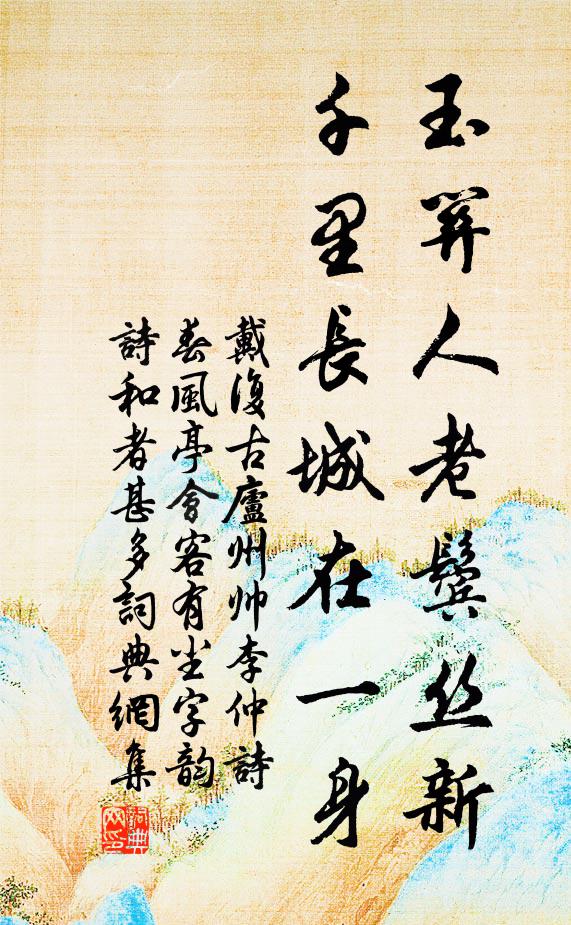 玉關人老鬢丝新
千里長城在一身
戴復古廬州帅李仲詩
春風亭會客有尘字韵
詩和者甚多詞典網集
詞典
网印